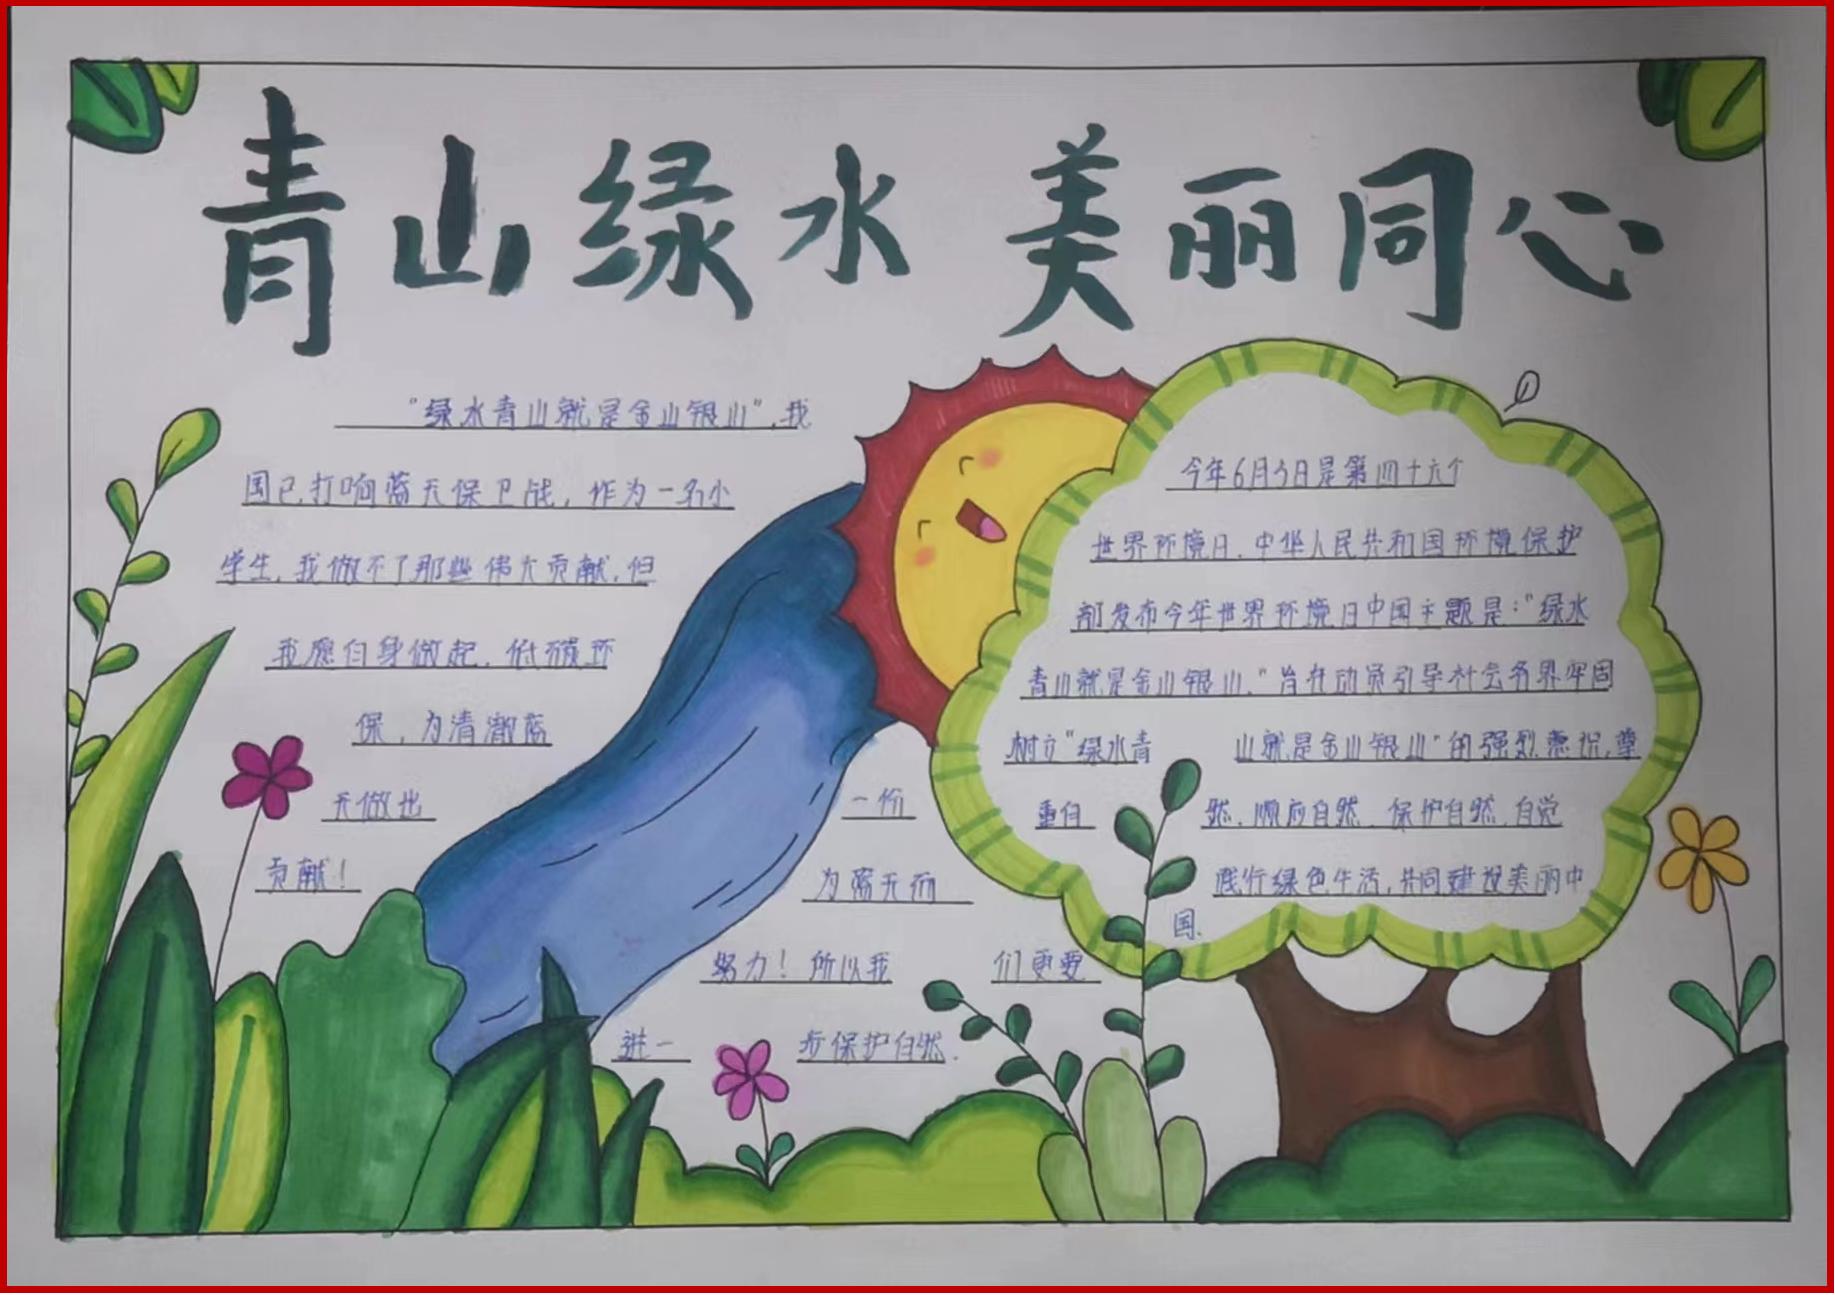 青山绿水 美丽同心
“绿水青山就是金山银山”,我
国已打响蓝天保卫战,作为一名小
学生,我做不了那些伟大贡献,但
我愿自身做起,低碳环
保,为清澈蓝
天做出一份
贡献!
为蓝天而
努力!所以我们更要
进一步保护自然.
今年6月5日是第四十六个
世界环境日.中华人民共和国环境保护
部发布今年世界环境日中国主题是:“绿水
青山就是金山银山.”旨在动员引导社会各界牢固
树立“绿水青山就是金山银山”的强烈意识,尊
重自然.顺应自然.保护自然.自觉
践行绿色生活,共同建设美丽中
国.